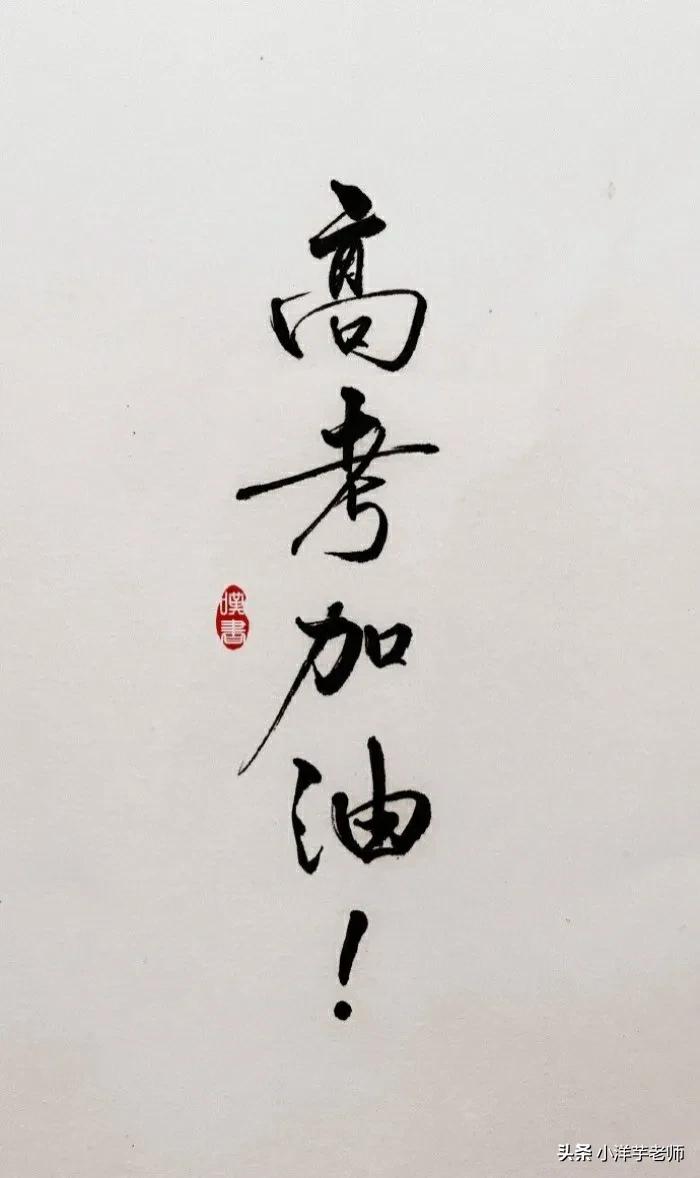 高考加油！
嘆書
头条 小洋芋老师